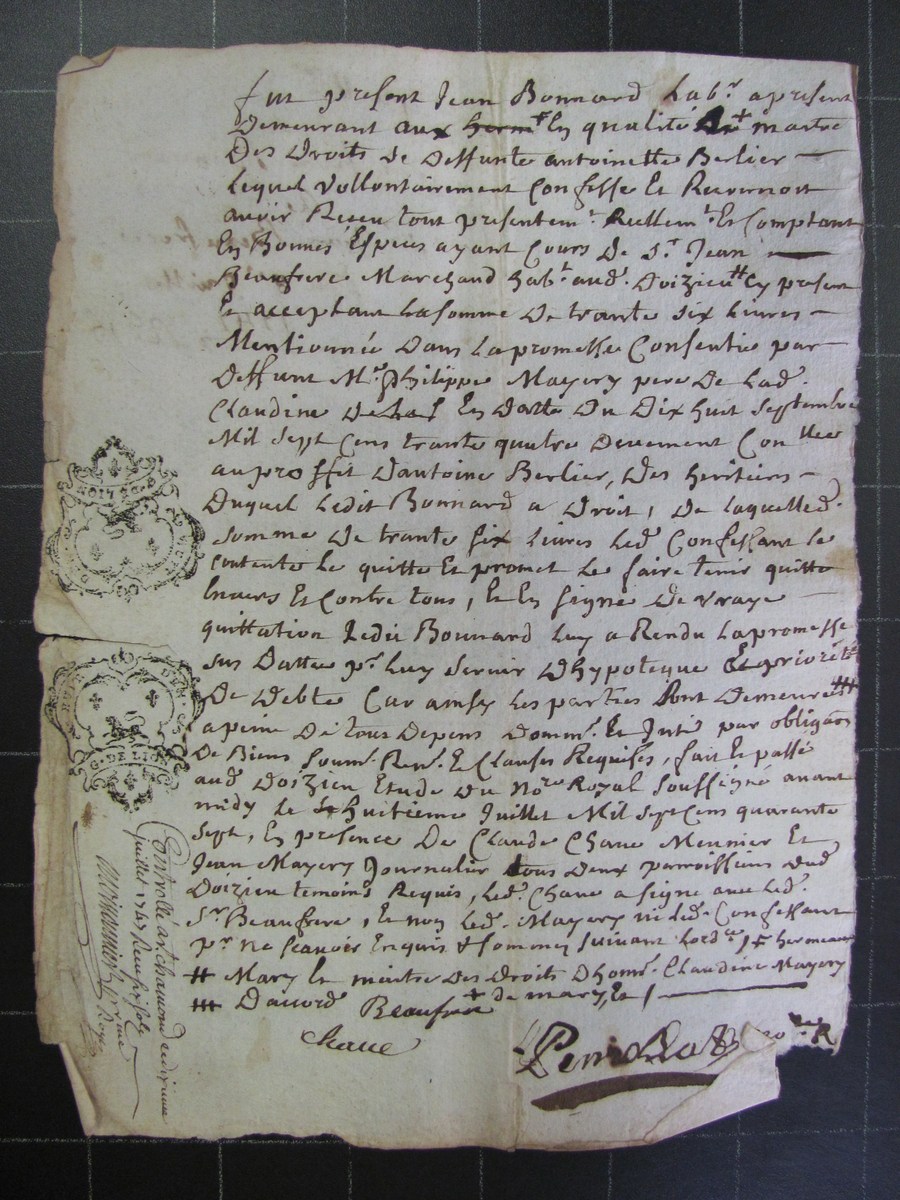 fut present Jean Bonnard hab.r apresent
Demeurant aux herm ╪ En qualité de + maitre
Des Droits de deffunte antoinette Berlier —
Lequel vollontairement Confesse Et Reconnoit
avoir Receu tout presentem.t Reellem.t Et Comptant
En Bonnes Especes ayant Cours De S.r Jean —
Beaufrere Marchand hab.t aud.t Doizieu ╫ Cy present
Et acceptant La somme De trante six Livres —
Mentionnée Dans La promesse Consentie par
Deffunt M.re Philippe Mayery pere De Lad.
Claudine En datte Du Dix huit Septembre
Mil Sept Cens trante quatre Deuement Con.llee
au proffet Dantoine Berlier, Des heritiers —
Duquel Ledit Bonnard a Droit, De Laquelled.
Somme De trante six Livres Led. Confessant Se
Contente Le quitte Et promet Le faire tenir quitte
Envers Et Contre tous, Et En signe De vraye —
quittation Ledit Bonnard Luy a Rendu La promesse
sus Dattée p.r Luy Servir Dhypoteque Et priorité
De Debte Car ainsy Les parties sont Demeuré ╫╫
a peine De tous Depens Domm. Et Inté. par obligaõn
De Biens Soum. Ren. Et Clauses Requises, fait Et passé
aud. Doizieu Etude Du No.re Royal Soussigné avant
midy Le huitieme Juillet Mil Sept Cens quarante
Sept, En presence De Claude Chave Meunier Et
Jean Mayery Journalier tous Deux parroissiens Dud.
Doizieu temoins Requis, Led. Chave a signé avec Led.
S.r Beaufrere, Et non Led. Mayery ni Led. Confessant
p.r ne Scavoir Enquis & Sommes suivant Lord.ce / ╪ hermeaux
╫ Mary Et maitre des Droits Dhome. Claudine Mayery
╫╫ Daccord + de mary, Et / —
Beaufrere
Chave
R
Controllé a st chamond ce dixieme
Juillet 1747 Reçu six sols